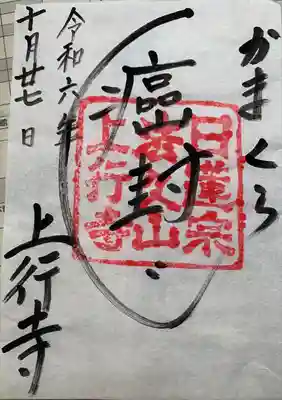 かまくら
癌封じ
日蓮宗
法久山
上行寺
令和六年
十月廿七日
上行寺